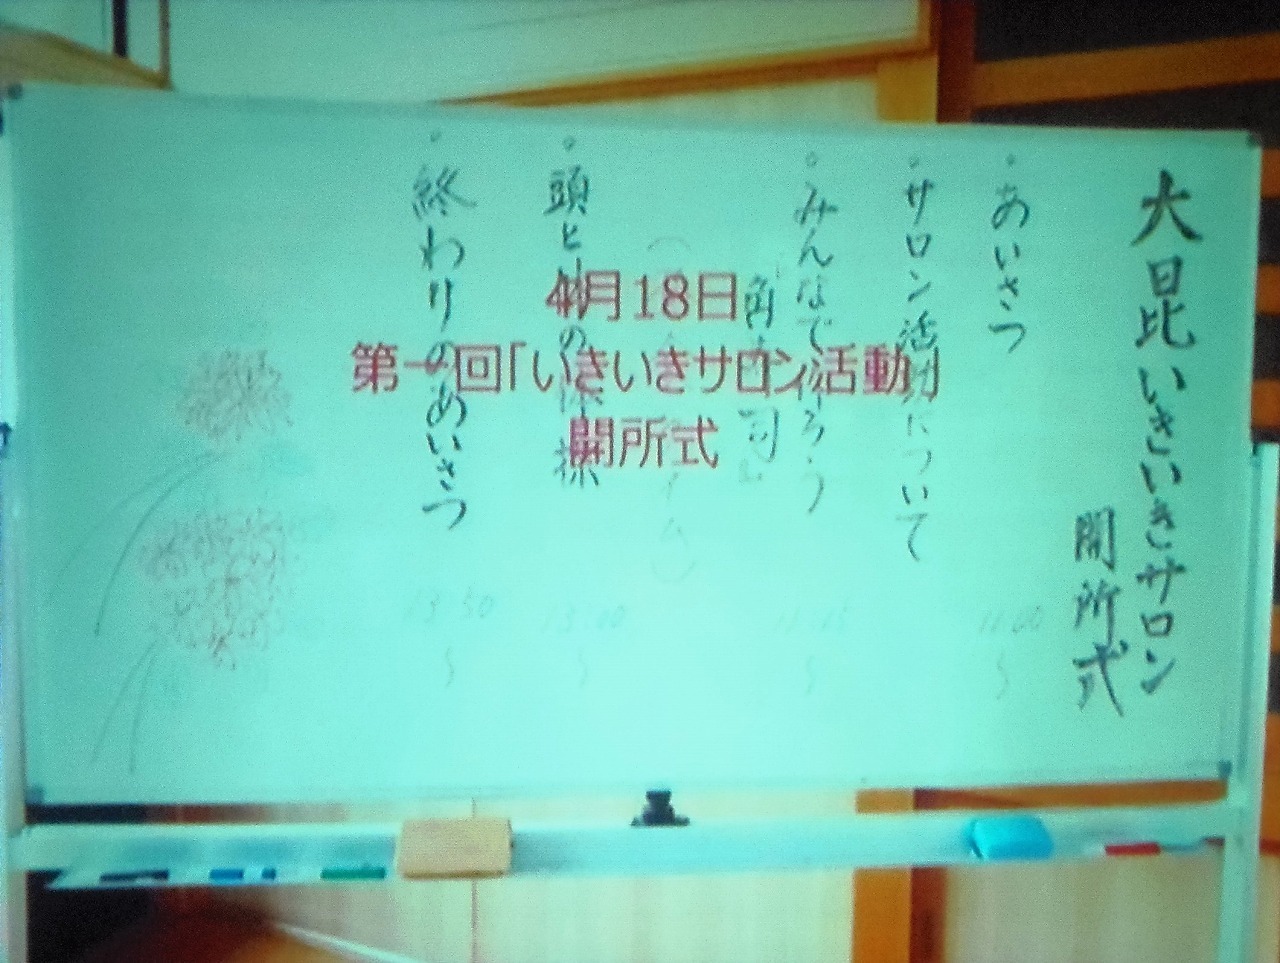 大日比いきいきサロン
開所式
。あいさつ
。サロン活動について
。みんなで作ろう
。頭と体の体操
。終わりのあいさつ
11:00
13:00
13:30
4月18日
第一回「いきいきサロン活動」
開所式